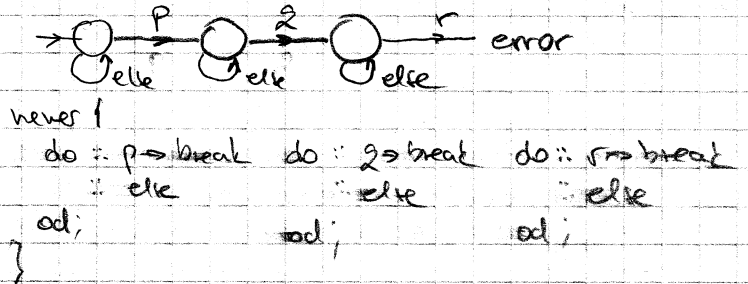 p q r error
else else else
never {
do :: p → break do :: q → break do :: r → break
:: else :: else :: else
od; od; od;
}